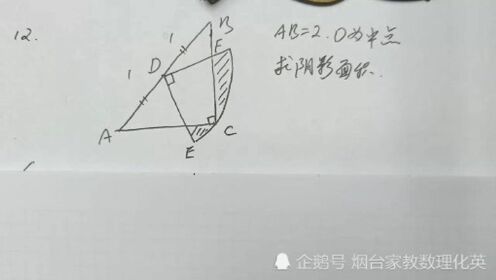 12.
AB=2. D为中点
求阴影面积.
B
1
F
D
1
A
C
E
企鹅号 烟台家教数理化英